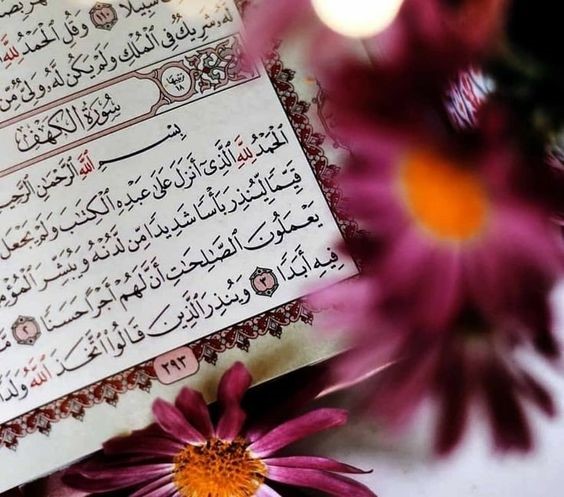 سَبِيلًا ١١٠ وَقُلِ ٱلْحَمْدُ لِلَّهِ
لَّهُۥ شَرِيكٌ فِى ٱلْمُلْكِ وَلَمْ يَكُن لَّهُۥ وَلِىٌّ مِّنَ
سُورَةُ الكَهْفِ
بِسْمِ ٱللَّهِ ٱلرَّحْمَٰنِ ٱلرَّحِيمِ
ٱلْحَمْدُ لِلَّهِ ٱلَّذِىٓ أَنزَلَ عَلَىٰ عَبْدِهِ ٱلْكِتَٰبَ وَلَمْ يَجْعَل
قَيِّمًا لِّيُنذِرَ بَأْسًا شَدِيدًا مِّن لَّدُنْهُ وَيُبَشِّرَ ٱلْمُؤْمِ
يَعْمَلُونَ ٱلصَّٰلِحَٰتِ أَنَّ لَهُمْ أَجْرًا حَسَنًا ٢
فِيهِ أَبَدًا ٣ وَيُنذِرَ ٱلَّذِينَ قَالُوا۟ ٱتَّخَذَ ٱللَّهُ وَلَدًا
٢٩٣